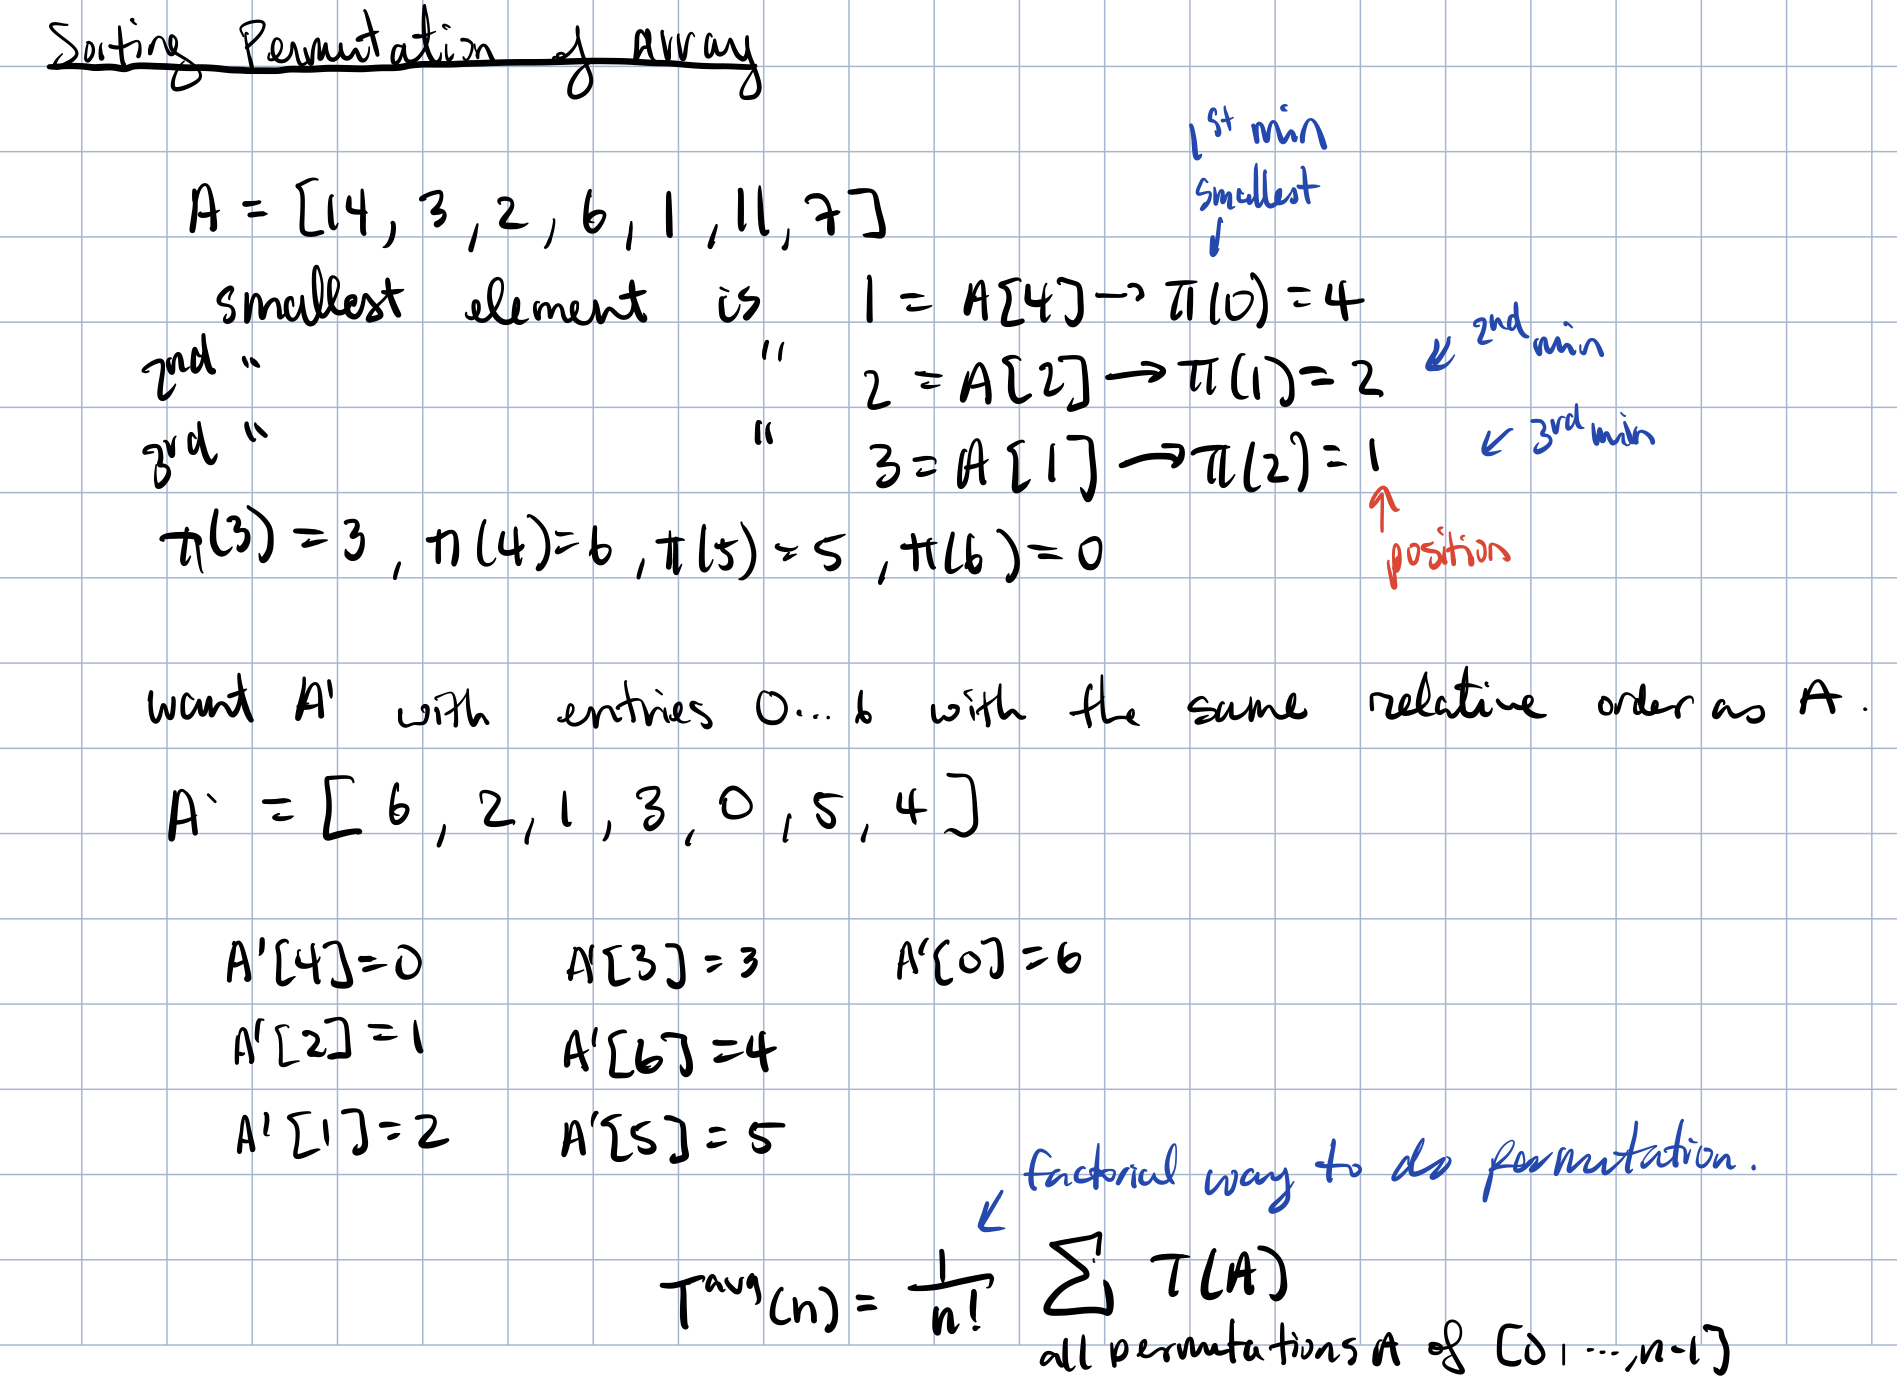 Sorting Permutation of Array
1st min
smallest
A = [14, 3, 2, 6, 1, 11, 7]
smallest element is 1 = A[4] → π(0) = 4
2nd " " 2 = A[2] → π(1) = 2 ↙ 2nd min
3rd " " 3 = A[1] → π(2) = 1 ↙ 3rd min
π(3) = 3, π(4) = 6, π(5) = 5, π(6) = 0
position
want A' with entries 0...6 with the same relative order as A.
A' = [6, 2, 1, 3, 0, 5, 4]
A'[4]=0 A'[3]=3 A'[0]=6
A'[2]=1 A'[6]=4
A'[1]=2 A'[5]=5
factorial way to do permutation.
T^avg(n) = 1/n! Σ T(A)
all permutations A of [0, ..., n-1]